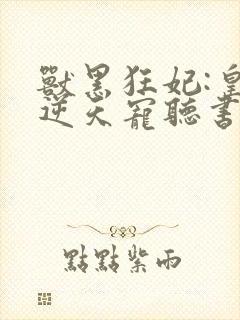 獸黑狂妃:皇
逆天寵聽書
點點紫雨